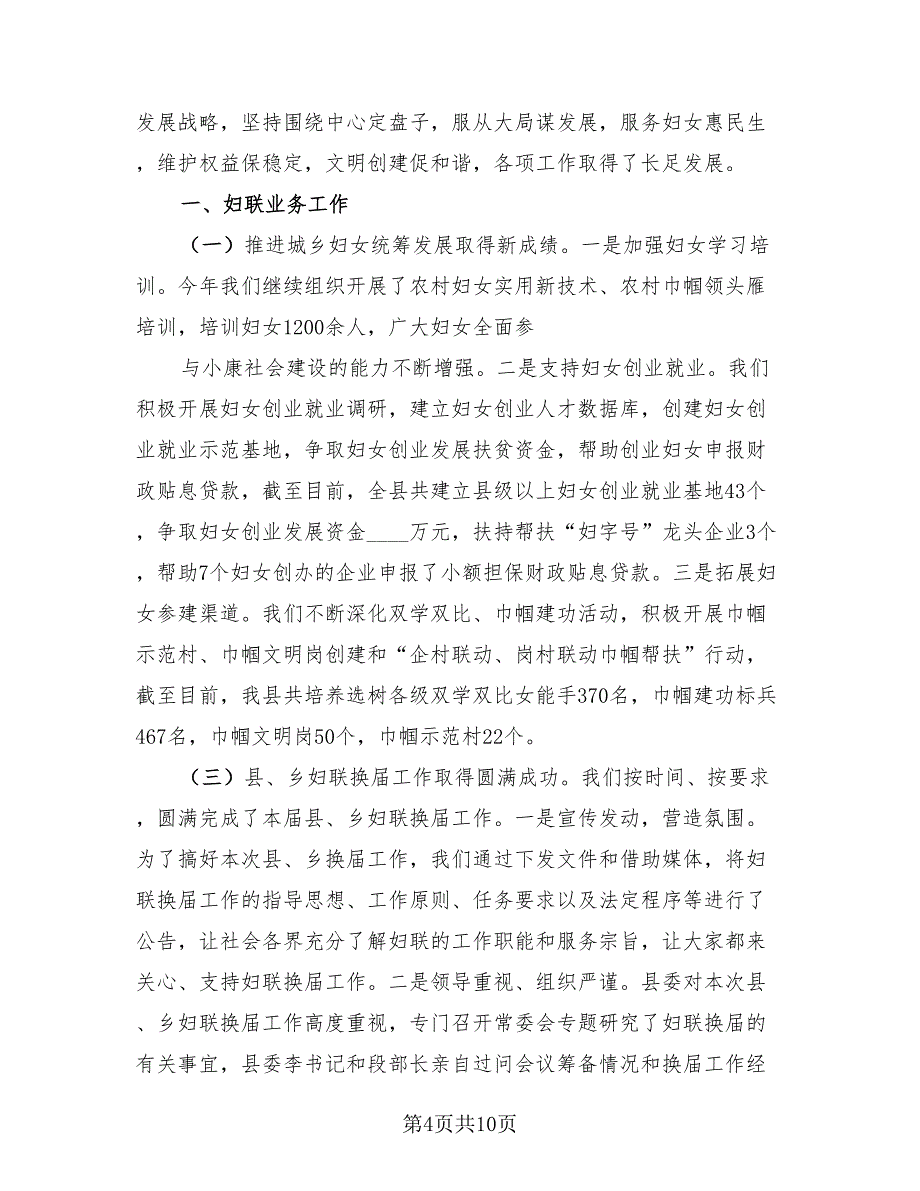 发展战略，坚持围绕中心定盘子，服从大局谋发展，服务妇女惠民生
，维护权益保稳定，文明创建促和谐，各项工作取得了长足发展。
一、妇联业务工作
（一）推进城乡妇女统筹发展取得新成绩。一是加强妇女学习培
训。今年我们继续组织开展了农村妇女实用新技术、农村巾帼领头雁
培训，培训妇女1200余人，广大妇女全面参
与小康社会建设的能力不断增强。二是支持妇女创业就业。我们
积极开展妇女创业就业调研，建立妇女创业人才数据库，创建妇女创
业就业示范基地，争取妇女创业发展扶贫资金，帮助创业妇女申报财
政贴息贷款，截至目前，全县共建立县级以上妇女创业就业基地43个
，争取妇女创业发展资金____万元，扶持帮扶“妇字号”龙头企业3个
，帮助7个妇女创办的企业申报了小额担保财政贴息贷款。三是拓展妇
女参建渠道。我们不断深化双学双比、巾帼建功活动，积极开展巾帼
示范村、巾帼文明岗创建和“企村联动、岗村联动巾帼帮扶”行动，
截至目前，我县共培养选树各级双学双比女能手370名，巾帼建功标兵
467名，巾帼文明岗50个，巾帼示范村22个。
（三）县、乡妇联换届工作取得圆满成功。我们按时间、按要求
，圆满完成了本届县、乡妇联换届工作。一是宣传发动，营造氛围。
为了搞好本次县、乡换届工作，我们通过下发文件和借助媒体，将妇
联换届工作的指导思想、工作原则、任务要求以及法定程序等进行了
公告，让社会各界充分了解妇联的工作职能和服务宗旨，让大家都来
关心、支持妇联换届工作。二是领导重视、组织严谨。县委对本次县
、乡妇联换届工作高度重视，专门召开常委会专题研究了妇联换届的
有关事宜，县委李书记和段部长亲自过问会议筹备情况和换届工作经
第4页共10页